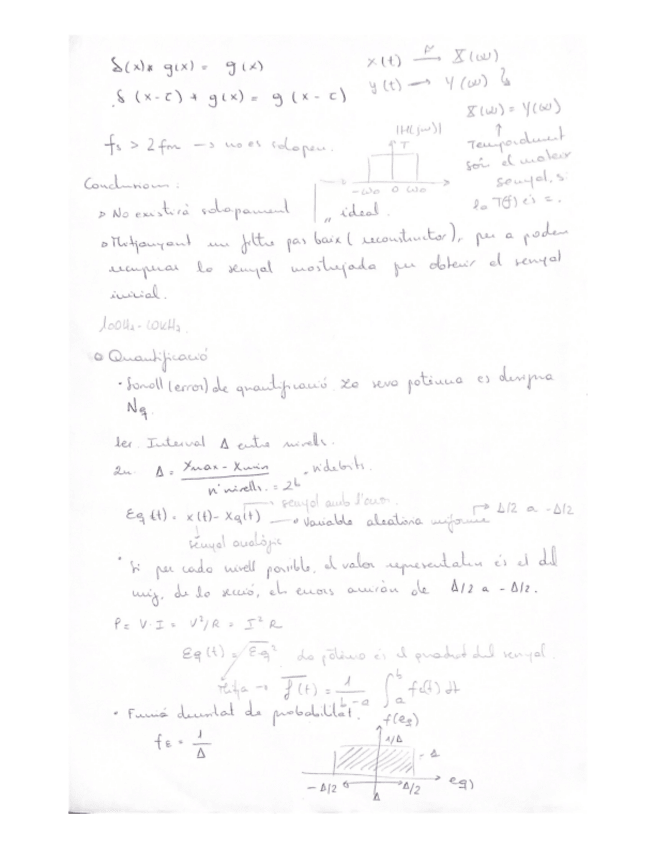 δ(x)* g(x) = g(x)
δ(x-τ) * g(x) = g(x-τ)
x(t) → X(ω)
y(t) → Y(ω)
X(ω) = Y(ω)
Temporalment
són el mateix
senyal, si
la T(F) és =.
fs > 2fm → no es solapen.
|H(jω)|
T
-ω0 0 ω0
Conclusions:
No existirà solapament
ideal.
Mitjançant un filtre pas baix (reconstructor), per a poder
recuperar la senyal mostrejada per obtenir el senyal
inicial.
100Hz-10kHz.
Quantificació
· Soroll (error) de quantificació. La seva potència es designa
Nq.
1er. Interval Δ entre nivells.
2n. Δ = Xmax - Xmin / nº nivells. = 2^b nº de bits.
senyal amb l'error.
Eq(t) = x(t) - Xq(t) variable aleatòria uniforme → Δ/2 a -Δ/2
senyal analògic
· Si per cada nivell possible, el valor representatiu és el del
mig, de la secció, els errors aniran de Δ/2 a -Δ/2.
P = V·I = V²/R = I²R
Eq(t) = Eq². La potència és el quadrat del senyal.
Mitja → f(t) = 1/(b-a) ∫ₐᵇ f(t) dt
· Funció densitat de probabilitat.
fE = 1/Δ
f(eq)
1/Δ
-Δ/2 Δ/2 eq)
Δ